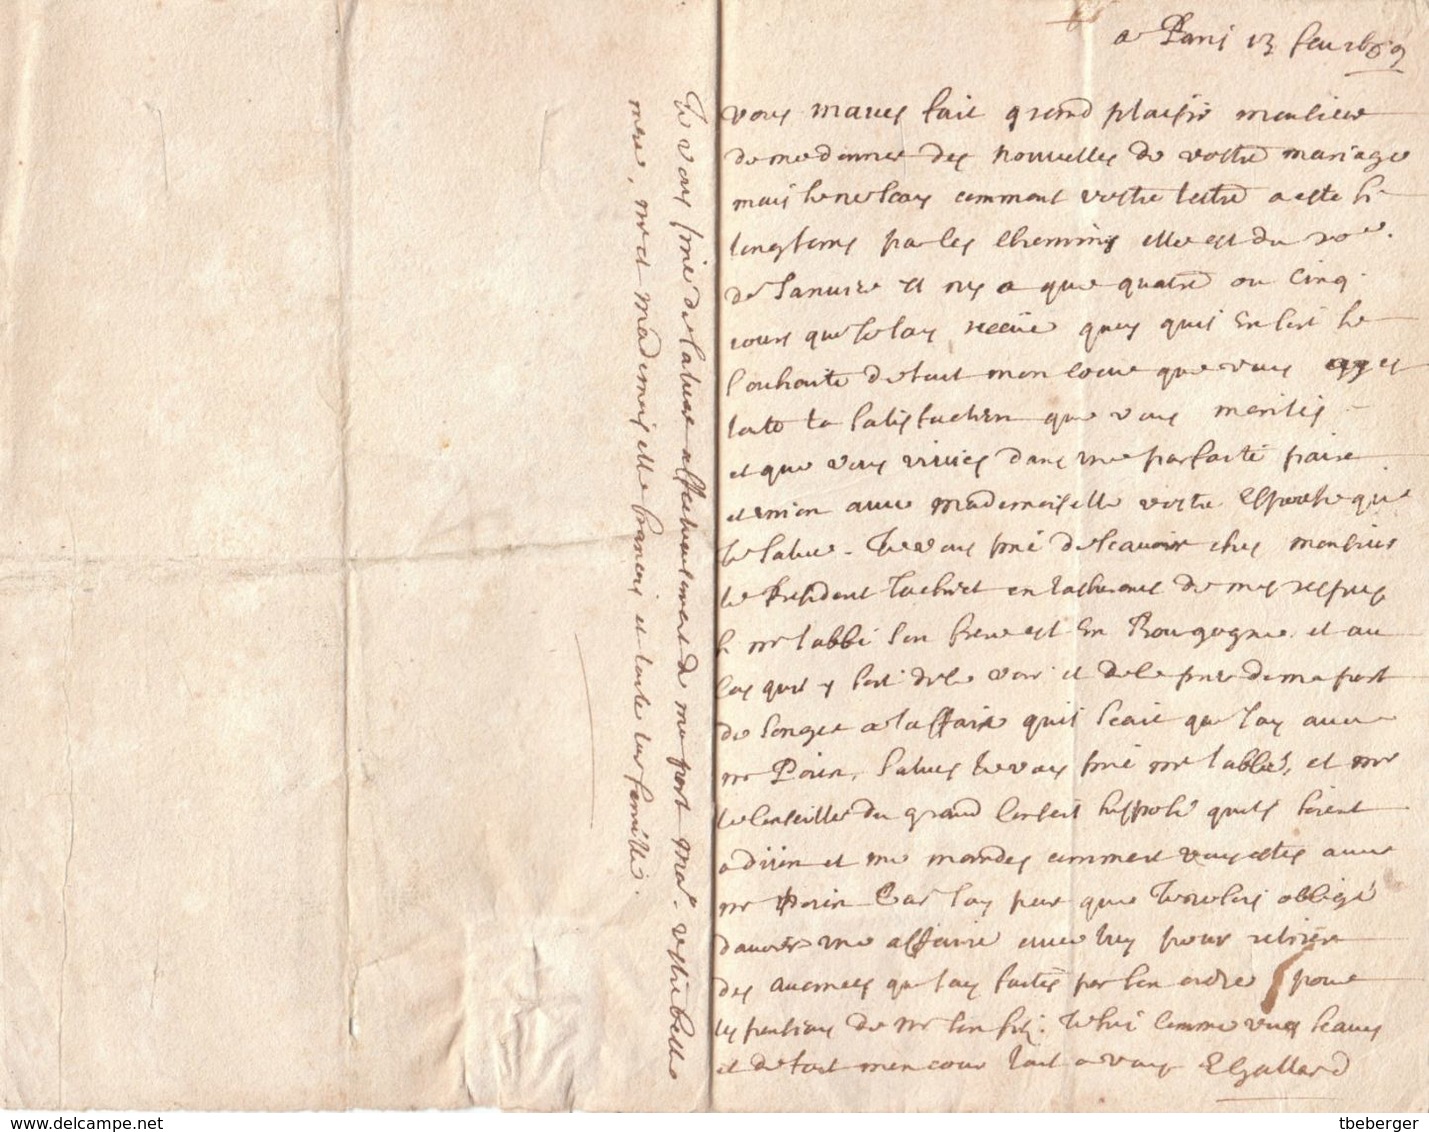 a Paris 13 feur 1689
vous maues fait grand plaisir monsieur
de me donner des nouuelles de vostre mariage
mais ie ne scay comment vostre lettre a esté si
longtems par les chemins elle est du
de Januier et ny a que quatre ou cinq
iours que ie lay receüe quoy quil En soit ie
souhaite de tout mon coeur que vous ayes
toute la satisfaction que vous merités
et que vous viuies dans une parfaite
et union auec mademoiselle vostre Espouse que
ie salue. Je vous prie de scauoir ches monsieur
le President en lasseurant de mes respets
si mr labbé son frere est En Bourgogne et au
cas quil y soit de le voir et de le prier de ma part
de songer a laffaire quil scait que iay auec
mr Poirn. Salues ie vous prie mr labbé, et mr
le conseiller du grand conseil supposé quils soient
a diion et me mandes comment vous estes auec
mr Poirn Car iay peur que ie ne sois obligé
dauoir une affaire auec luy pour retirer
des auances que iay faites par son ordre pour
les pensions de mr son fils. Je suis comme vous scaues
et de tout mon coeur tout a vous EGallard
Je vous prie de saluer affectueusement de ma part mad. vostre belle
mere, mr et mademoiselle francois et toute leur famille.
delcampe.net
tbeberger